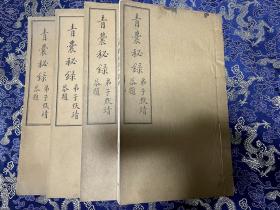 青囊秘録
弟子 靖
恭題
青囊秘録
弟子 靖
恭題
青囊秘録
弟子 靖
恭題
青囊秘録
弟子 靖
恭題